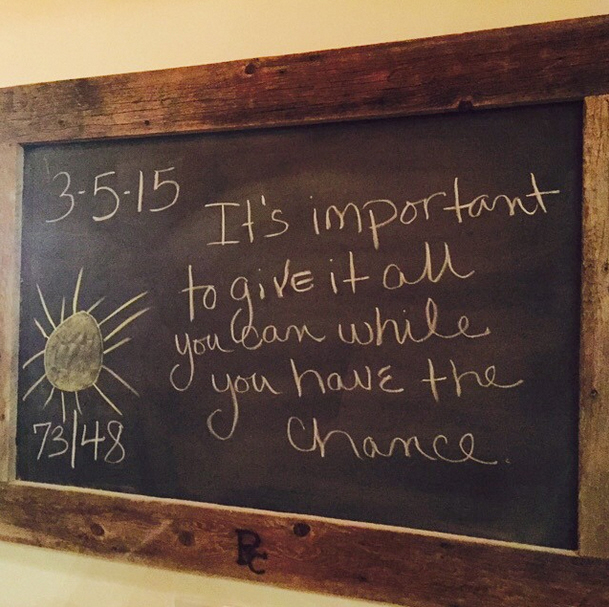 3-5-15
It's important
to give it all
you can while
you have the
chance.
73/48
RC